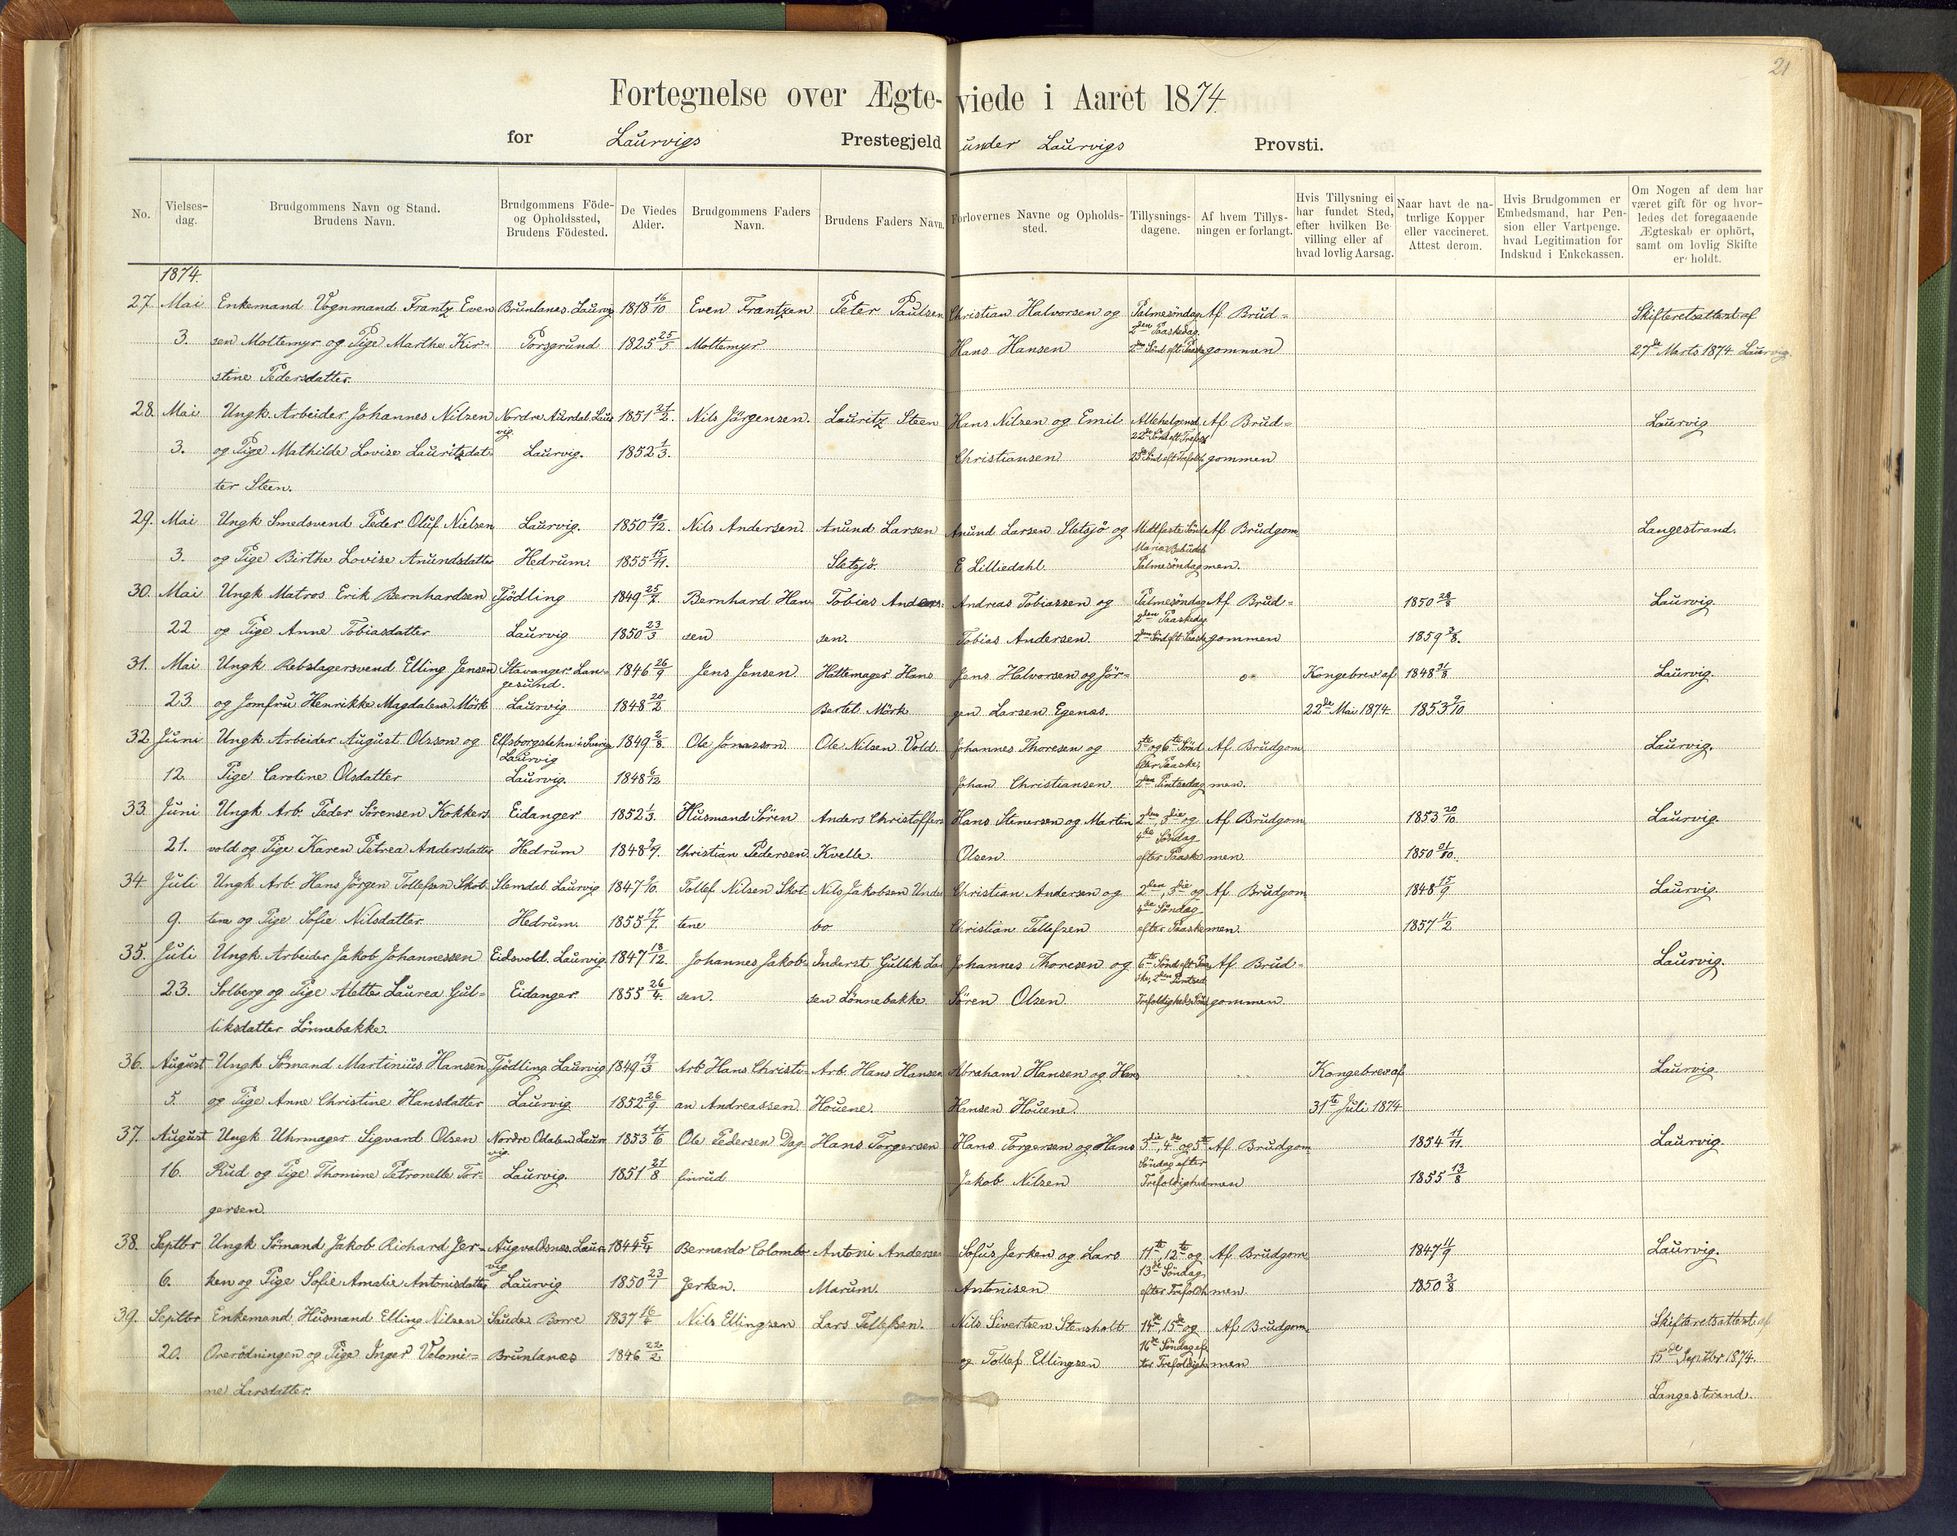 21
Fortegnelse over Ægte-viede i Aaret 1874.
for Laurvigs Prestegjeld under Laurvigs Provsti.
No. | Vielses-dag. | Brudgommens Navn og Stand. Brudens Navn. | Brudgommens Føde- og Opholdssted, Brudens Fødested. | De Viedes Alder. | Brudgommens Faders Navn. | Brudens Faders Navn. | Forlovernes Navne og Opholds-sted. | Tillysnings-dagene. | Af hvem Tillys-ningen er forlangt. | Hvis Tillysning ei har fundet Sted, efter hvilken Be-villing eller af hvad lovlig Aarsag. | Naar havt de na-turlige Kopper eller vaccineret. Attest derom. | Hvis Brudgommen er Embedsmand, har Pen-sion eller Vartpenge, hvad Legitimation for Indskud i Enkekassen. | Om Nogen af dem har været gift før og hvor-ledes det foregaaende Ægteskab er ophørt, samt om lovlig Skifte er holdt.
1874.
27. Mai Enkemand Vognmand Frantz Even Brunlanes. Laurvig 1818 16/10 Even Frantzen Peter Paulsen Christian Halvorsen og Palmesøndag Af Brud= Skifteretsattest af
2den Paaskedag
3. sen Moltemyr og Pige Marthe Kir= Porsgrund 1825 25/5 Moltemyr Hans Hansen 2den Sønd. eft. Paaske gommen 27de Marts 1874. Laurvig.
stine Pedersdatter.
28. Mai Ungk. Arbeider Johannes Nilsen Nordre Aurdal. Laur 1851 21/2. Nils Jörgensen. Lauritz Steen Hans Nilsen og Emil Allehelgensd. Af Brud= Laurvig
vig. 22de Sønd. eft. Trefold.
3. og Pige Mathilde Lovise Lauritzdat Laurvig. 1852 1/3. Christiansen 23de Sønd. eft. Trefold. gommen
ter Steen.
29. Mai Ungk Smedsvend Peder Oluf Nielsen Laurvig. 1850 10/12. Nils Andersen. Anund Larsen Anund Larsen Sletsjö og Midtfaste Sønd Af Brudgom Langestrand.
Mariæ Bebudels
3. og Pige Birthe Lovise Anundsdatter Hedrum. 1855 15/11. Sletsjö. E Lilliedahl. Palmesøndag men.
30. Mai Ungk Matros Erik Bernhardsen Tjödling 1849 25/7. Bernhard Han Tobias Anders. Andreas Tobiassen og Palmesøndag Af Brud= 1850 28/8 Laurvig.
2den Paaskedag
22 og Pige Anne Tobiasdatter Laurvig 1850 23/3 sen sen. Tobias Andersen. 2den Sønd eft. Paaske gommen 1859 2/8.
31. Mai Ungk Rebslagersvend Elling Jensen Stavanger. Lan= 1846 26/9 Jens Jensen. Hattemager Hans Jens Halvorsen og Jör= Kongebrev af 1848 21/8 Laurvig.
gesund.
23. og Jomfru Henrikke Magdalene Mörk Laurvig 1848 20/2 Bertel Mörk gen Larsen Egenæs. 22de Mai 1874 1853 9/10.
32 Juni Ungk Arbeider August Olsson og Elfsborgslehn i Sverig 1849 2/8 Ole Jonasson. Ole Nilsen Vold. Johannes Thoresen og 5te og 6te Sønd Af Brudgom Laurvig.
Laurvig efter Paaske,
12. Pige Caroline Olsdatter Laurvig. 1848 6/12 Johan Christiansen 2den Pintsedag men.
33. Juni Ungk Arb. Peder Sørensen Kokkers Eidanger 1852 1/3. Husmand Søren Anders Christoffers Hans Stenersen og Martin 2den, 3die og Af Brudgom 1853 20/10 Laurvig.
4de Søndag
21. vold og Pige Karen Petrea Andersdatter Hedrum 1848 2/9. Christian Pedersen Kvelle. Olsen. efter Paaske men. 1850 21/10.
34. Juli Ungk Arb. Hans Jörgen Tollefsen Skot Slemdal. Laurvig 1847 9/10. Tollef Nilsen Skot Nils Jakobsen Unde Christian Andersen og 2den, 3die og Af Brudgom 1848 15/9 Laurvig
4de Søndag
9. tene og Pige Sofie Nilsdatter Hedrum. 1855 17/7 tene bo Christian Tollefsen efter Paaske men. 1857 11/2
35. Juli Ungk Arbeider Jakob Johannessen Eidsvold. Laurvig. 1847 13/12 Johannes Jakob- Inderst Gullik La Johannes Thoresen og 6te Sønd eft. Paa Af Brud= Laurvig.
ske, 2den Pintsed.
23. Solberg og Pige Alette Laurea Gul= Eidanger. 1855 26/4. sen. sen Lönnebakke. Sören Olsen Trefoldigheds Sønd gommen
liksdatter Lönnebakke.
36. August Ungk Sömand Martinius Hansen Tjödling Laurvig 1849 19/3 Arb Hans Christi= Arb. Hans Hansen Abraham Hansen og Hans Kongebrev af Laurvig
5. og Pige Anne Christine Hansdatter Laurvig 1852 26/9 an Andreassen Houene. Hansen Houene. 31te Juli 1874
37. August Ungk Uhrmager Sigvard Olsen Nordre Odalen Laur 1853 11/6 Ole Pedersen Dag= Hans Torgersen Hans Torgersen og Hans 3die, 4de og 5te Af Brudgom 1854 11/11. Laurvig.
vig. Søndag efter
16. Rud og Pige Thomine Petronelle Tor= Laurvig. 1851 21/8 finrud Jakob Nilsen Trefoldighed men 1855 13/8
gersen.
38. Septbr Ungk Sömand Jakob Richard Jer= Augvaldsnes. Laur 1844 5/4 Bernardo Colombo Antoni Anderse Sofus Jerken og Lars 11te, 12te og Af Brudgom 1847 11/9 Laurvig.
vig 13de Søndag
6. ken og Pige Sofie Amalie Antonisdatter Laurvig 1850 23/1 Jerken. Marum. Antonisen efter Trefoldh men. 1850 3/8
39. Septbr Enkemand Husmand Elling Nilsen Saude. Borre 1837 16/4 Nils Ellingsen Lars Tollefsen. Nils Sivertsen Stensholt 14de, 15de og Af Brudgom= Skifteretsattest af
16de Søndag ef
20. Orerödningen og Pige Inger Volomi= Brunlanes 1846 22/2 og Tollef Ellingsen ter Trefoldigh men 15de Septbr 1874.
ne Larsdatter. Langestrand.